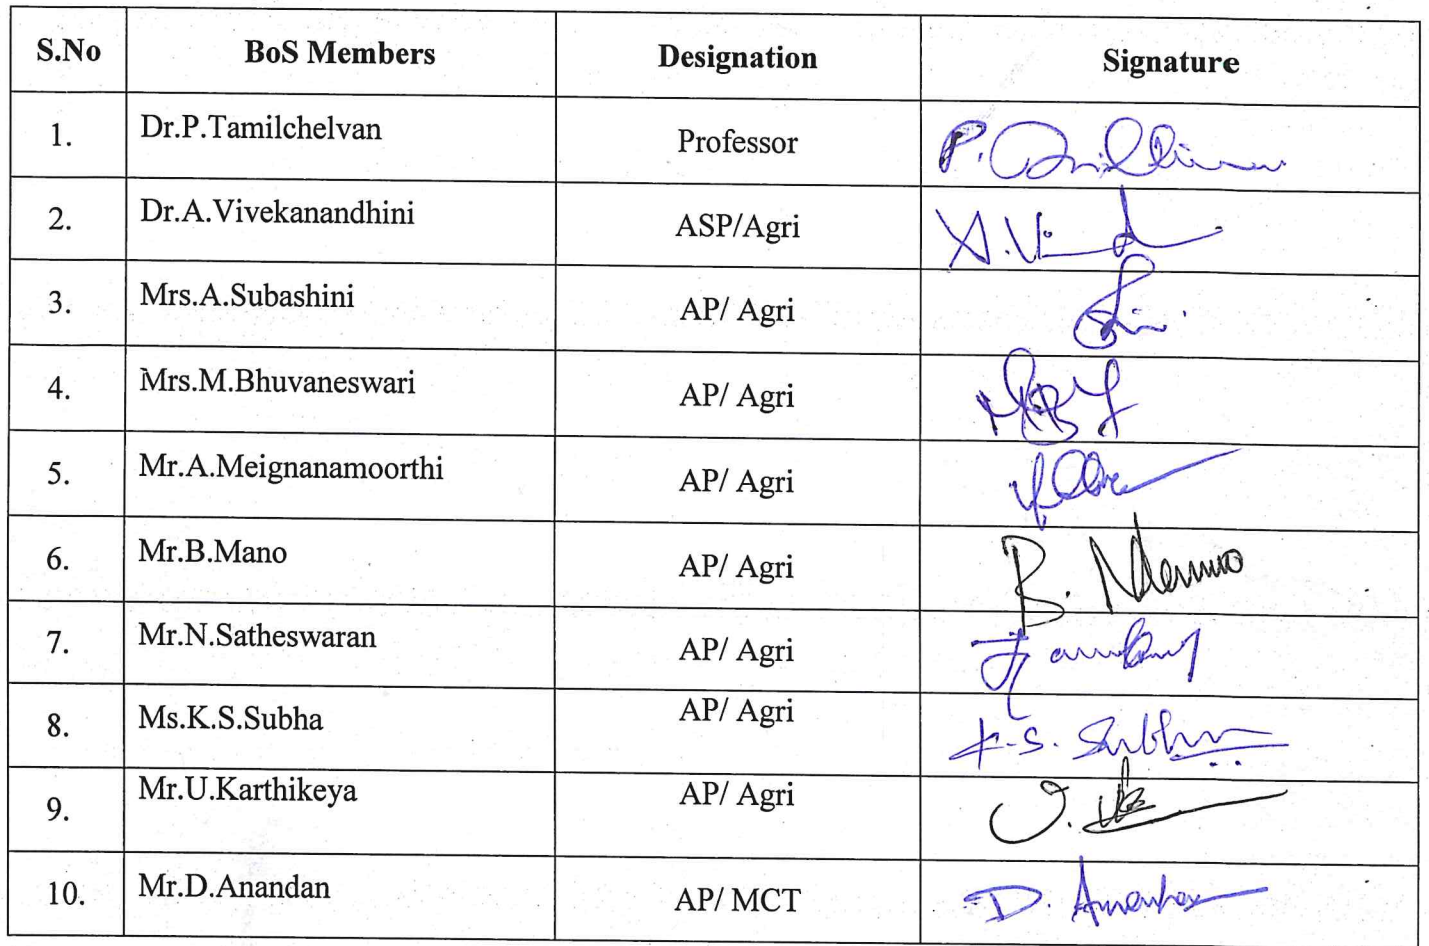 S.No BoS Members Designation Signature
1. Dr.P.Tamilchelvan Professor
2. Dr.A.Vivekanandhini ASP/Agri
3. Mrs.A.Subashini AP/ Agri
4. Mrs.M.Bhuvaneswari AP/ Agri
5. Mr.A.Meignanamoorthi AP/ Agri
6. Mr.B.Mano AP/ Agri B.
7. Mr.N.Satheswaran AP/ Agri
8. Ms.K.S.Subha AP/ Agri K.S. Subha
9. Mr.U.Karthikeya AP/ Agri
10. Mr.D.Anandan AP/ MCT D.